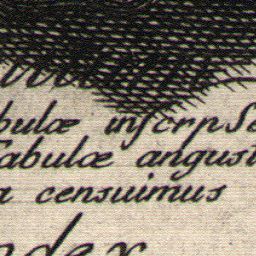 bulæ inscrps
Tabulæ angust
a censuimus
ndex